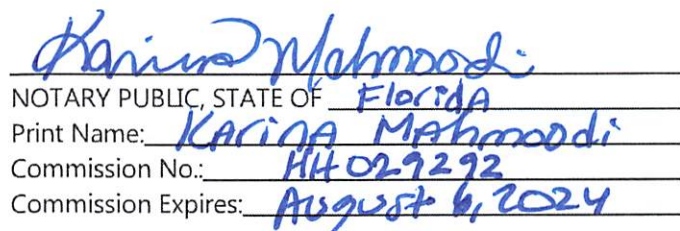 Karina Mahmoodi
NOTARY PUBLIC, STATE OF Florida
Print Name: Karina Mahmoodi
Commission No.: HH029292
Commission Expires: August 6, 2024